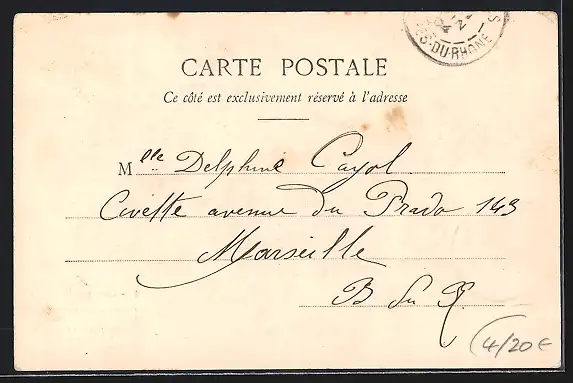 S-DU-RHONE
CARTE POSTALE
Ce côté est exclusivement réservé à l'adresse
Mlle Delphine Cayol
Civette avenue du Prado 143
Marseille
B du R.
4/20€